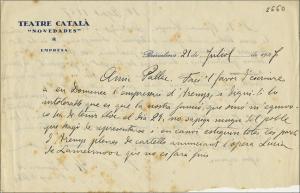 2660
TEATRE CATALÀ
"NOVEDADES"
EMPRESA
Barcelona 21 de Juliol de 1927
Amic Pallic. Faci'l favor d'escriure
a en Domenec l'empresari d'Arenys, a
intolerable que es que la nostra funció, que sinó m'equivoco
ha de tenir lloc el dia 24, no sapiga ningú del poble
que hagi de representarse i en canvi estiguin totes les parets
d'Arenys plenes de cartells anunciant l'opera Lucia
de Lammermoor que no es farà fins